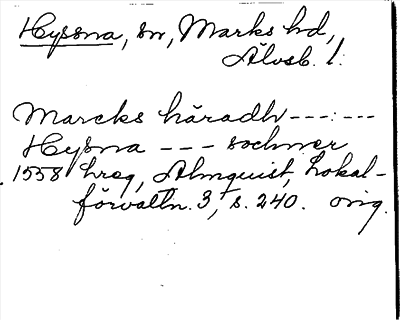 Hyssna, sn, Marks hd,
Älvsb. l.
Marcks häradh ---:---
Hysna --- sochner
1558 hreg, Almquist, Lokal-
förvaltn. 3, s. 240. orig.